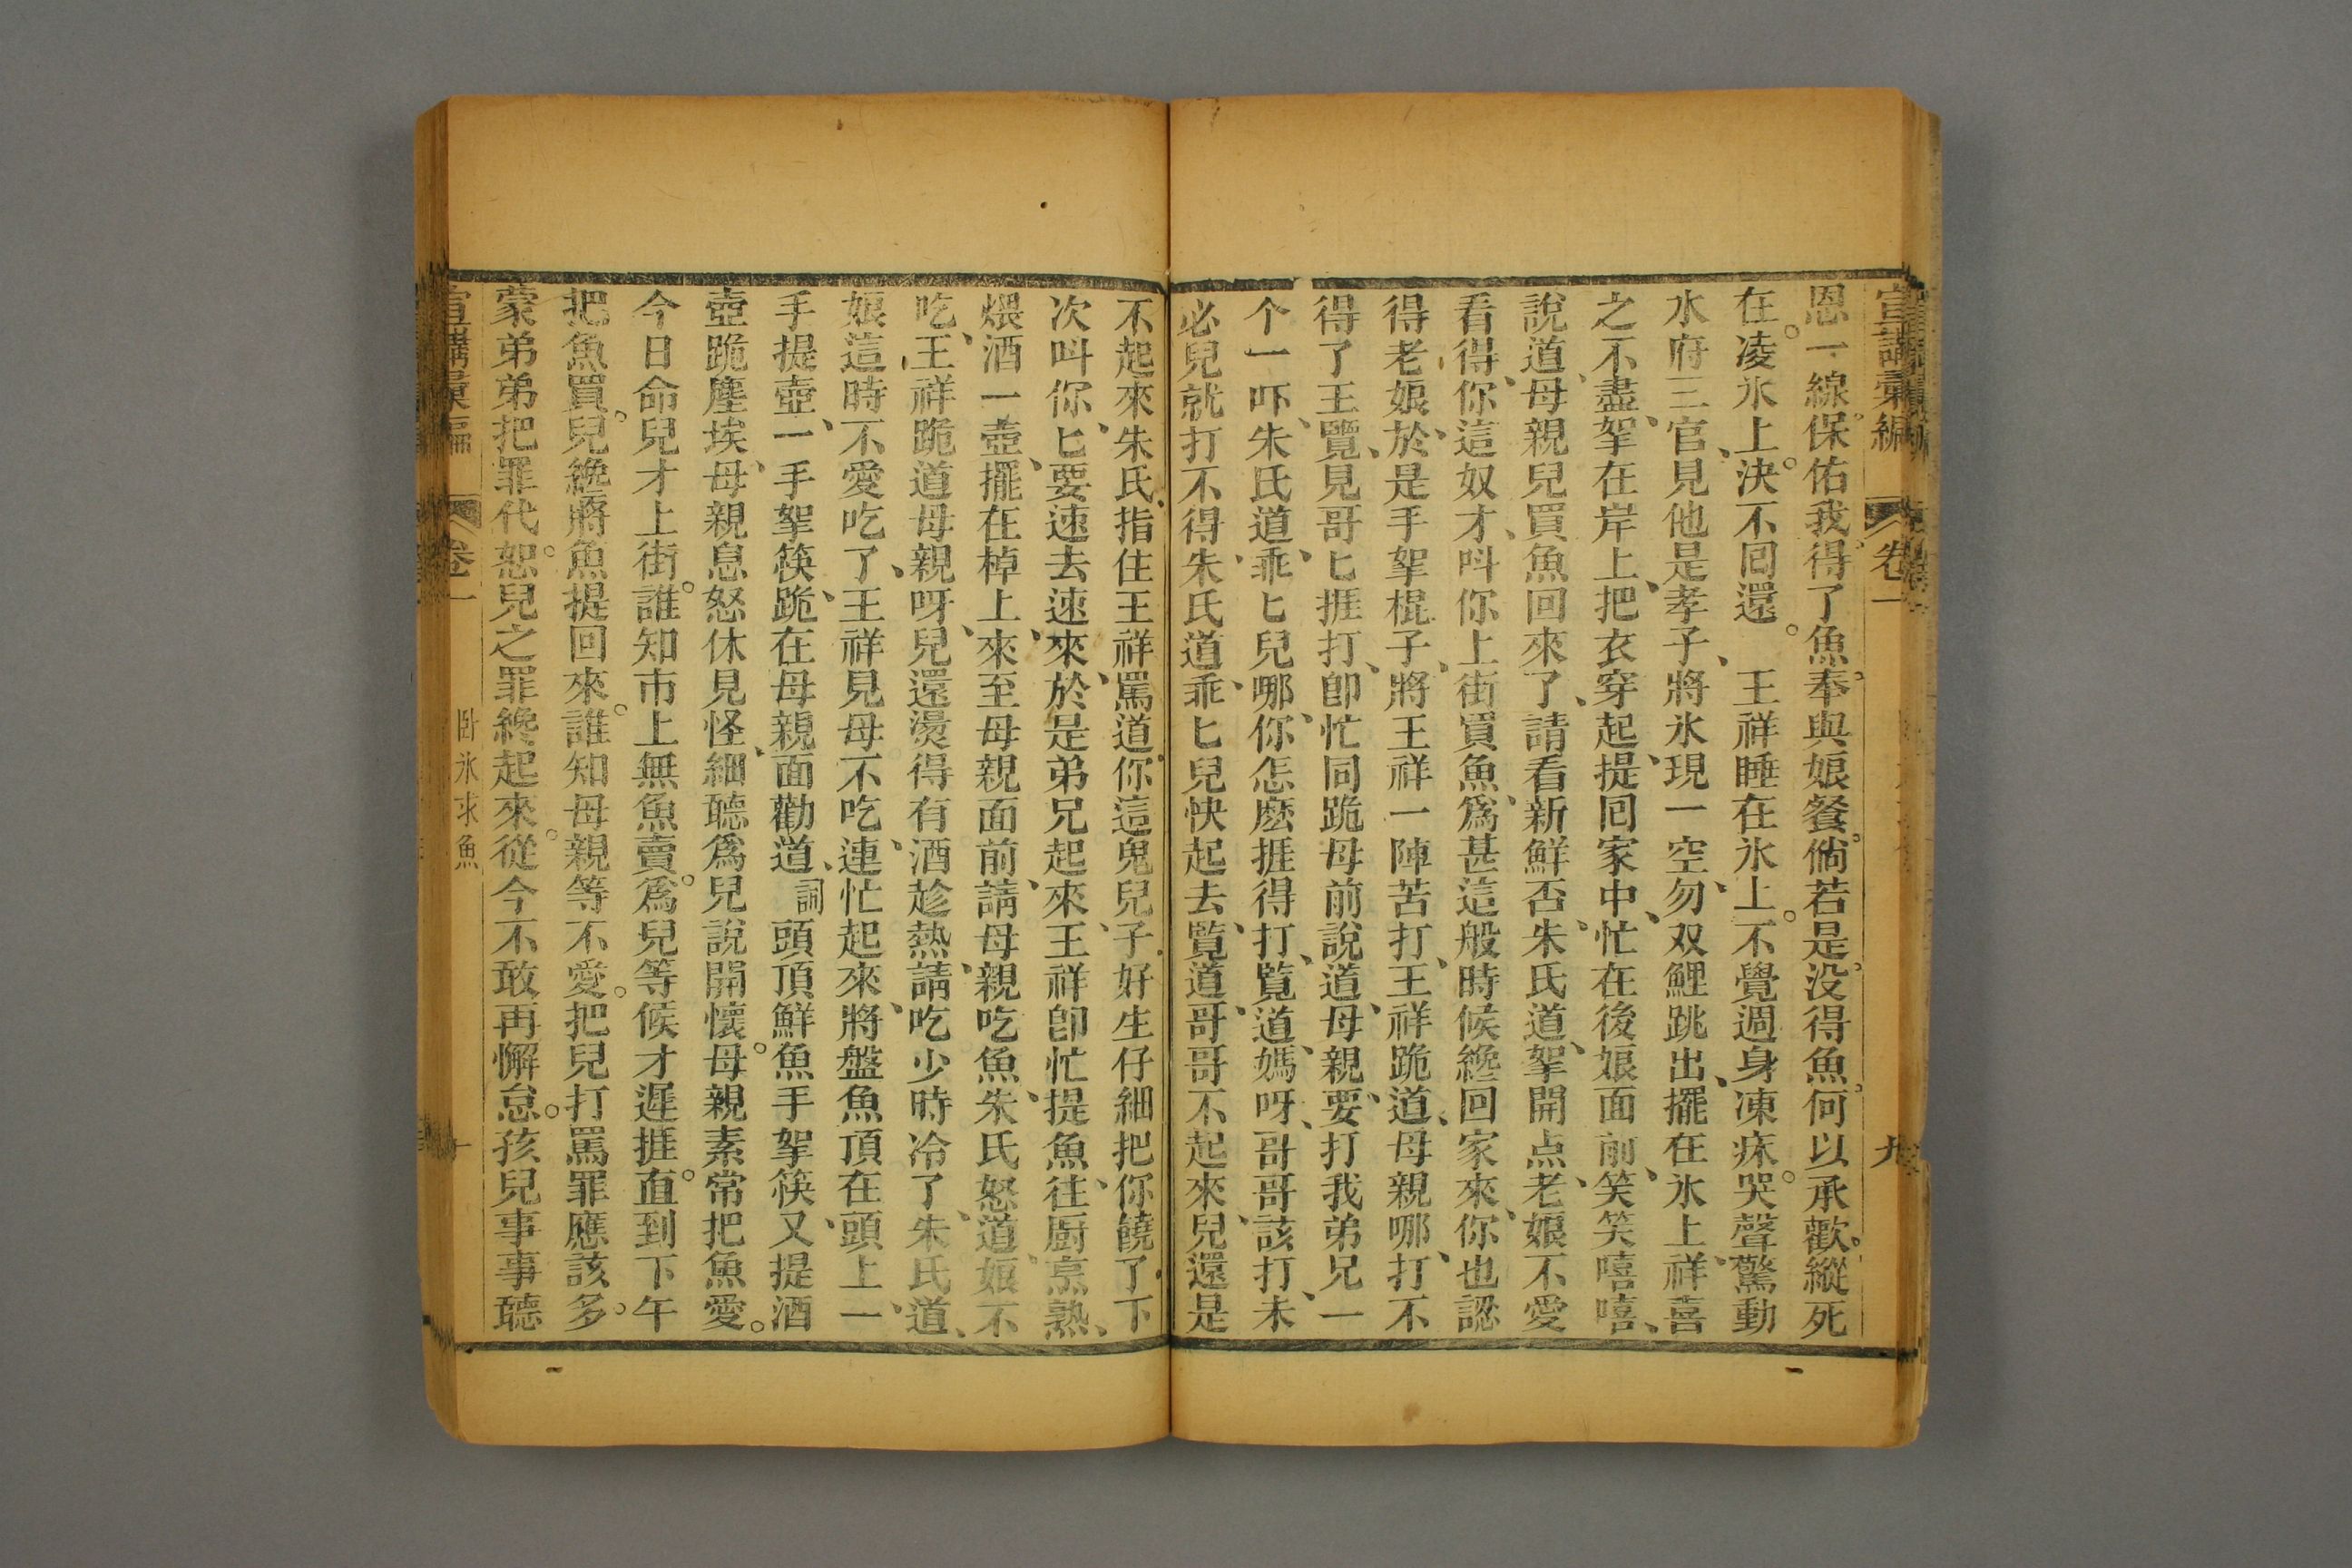 宣講彙編 卷一 九
恩一線。保佑我。得了魚。奉與娘餐。倘若是。没得魚。何以承歡。縱死
在。凌氷上。決不囘還。 王祥睡在氷上。不覺週身凍床。哭聲驚動
水府三官、見他是孝子、將氷現一空、勿双鯉跳出、擺在氷上、祥喜
之不盡、挐在岸上、把衣穿起、提囘家中、忙在後娘面前、笑笑嘻嘻、
說道、母親兒買魚回來了、請看新鮮否、朱氏道、挐開点、老娘不愛
看得、你這奴才、呌你上街買魚、爲甚這般時候纔回家來、你也認
得老娘、於是手挐棍子、將王祥一陣苦打、王祥跪道、母親哪、打不
得了王覽、見哥匕捱打、卽忙同跪母前說道、母親、要打我弟兄一
个一吓、朱氏道、乖匕兒哪、你怎麽捱得打、覽道、媽呀、哥哥該打、未
必兒就打不得、朱氏道、乖匕兒快起去、覽道、哥哥不起來、兒還是
不起來朱氏、指住王祥、罵道、你這鬼兒子、好生仔細把你饒了、下
次呌你、匕要速去速來、於是弟兄起來、王祥卽忙提魚、往厨烹熟、
煨酒一壺、擺在棹上、來至母親面前、請母親吃魚、朱氏怒道、娘不
吃、王祥跪道、母親呀、兒還燙得有酒趁熱、請吃少時冷了、朱氏道、
娘這時不愛吃了、王祥見母不吃、連忙起來、將盤魚頂在頭上、一
手提壺、一手挐筷、跪在母親面勸道、詞頭頂鮮魚手挐筷、又提酒
壺跪塵埃、母親息怒休見怪、細聽爲兒說開懷。母親素常把魚愛。
今日命兒才上街。誰知市上無魚賣。爲兒等候才遲捱。直到下午
把魚買。兒纔將魚提回來。誰知母親等不愛。把兒打罵罪應該多。
蒙弟弟把罪代。恕兒之罪纔起來。從今不敢再懈怠。孩兒事事聽
宣講彙編 卷一 卧氷求魚 十